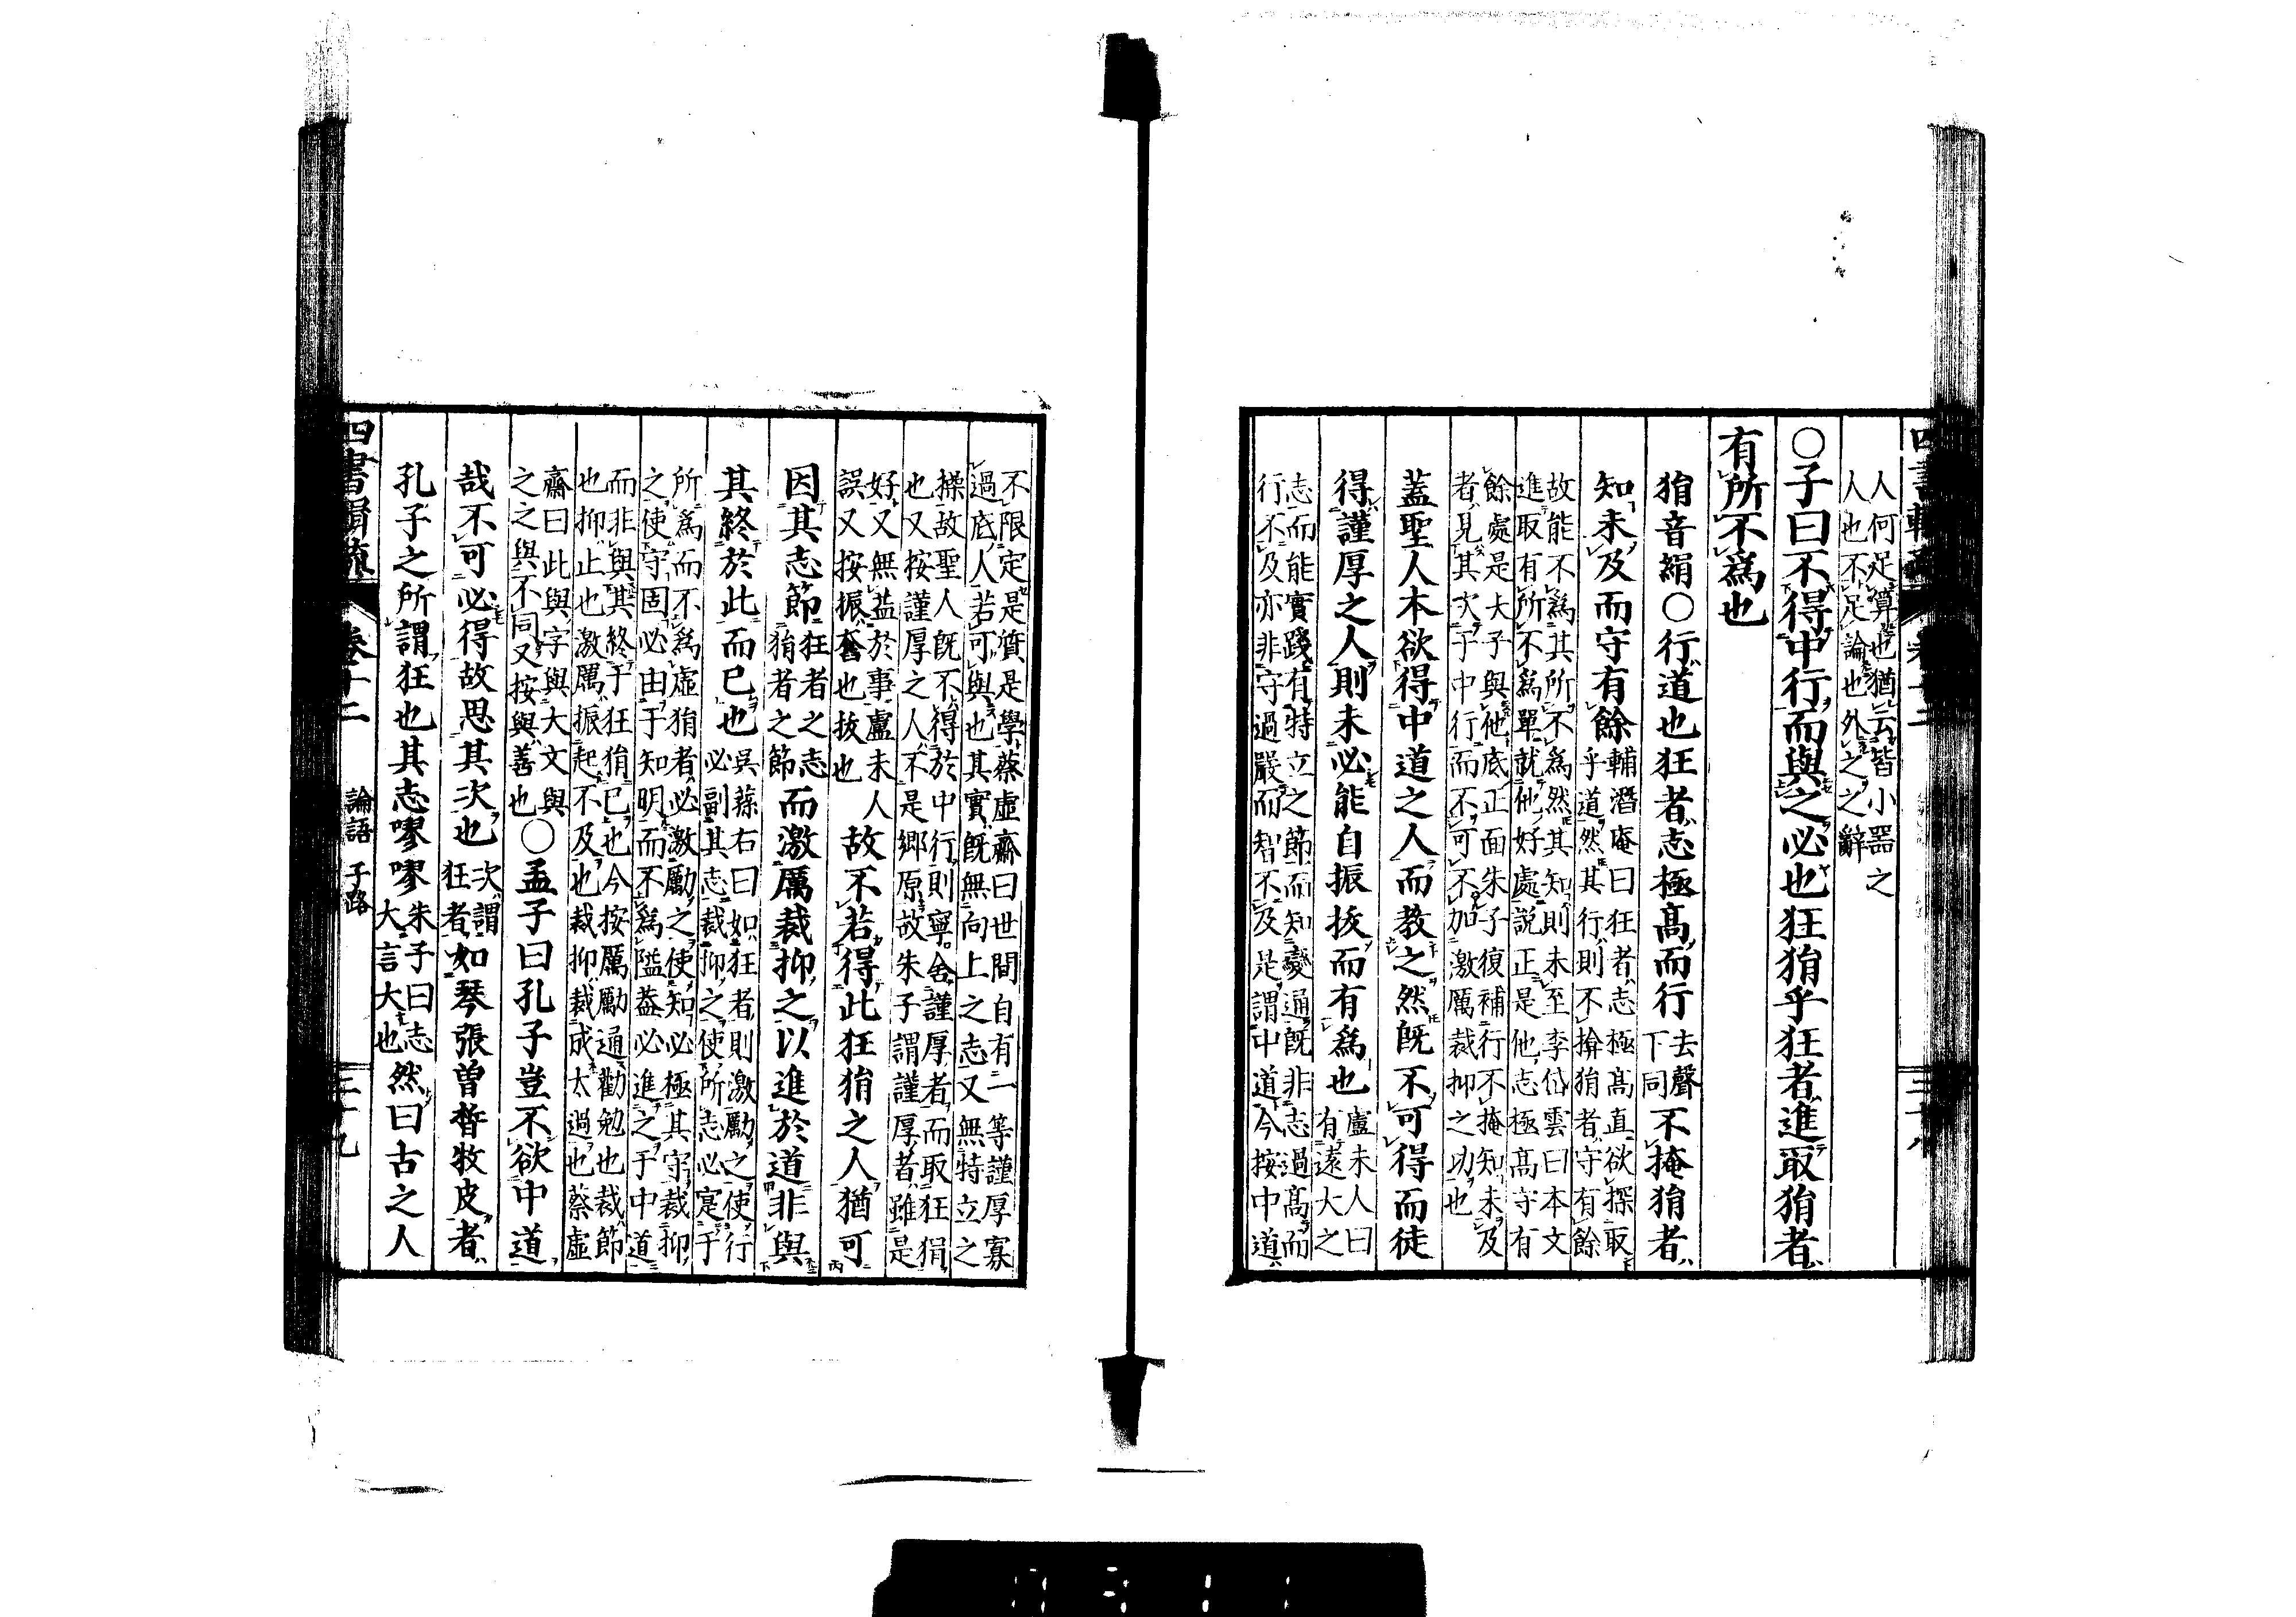 人何足算也猶云皆小器之
人也不足論也外之之辭
○子曰不得中行而與之必也狂狷乎狂者進取狷者
有所不爲也
狷音絹○行道也狂者志極高而行
去聲
下同
不掩狷者
知未及而守有餘
輔潛庵曰狂者志極高直欲探取
乎道然其行則不揜狷者守有餘
故能不爲其所不爲然其知則未至李岱雲曰本文
進取有所不爲單就他好處說正是他志極高守有
餘處是夫子與他底正面朱子復補行不掩知未及
者見其次于中行而不可不加激厲裁抑之功也
蓋聖人本欲得中道之人而教之然既不可得而徒
得謹厚之人則未必能自振拔而有爲也
盧未人曰
有遠大之
志而能實踐有特立之節而知變通既非志過高而
行不及亦非守過嚴而智不及是謂中道今按中道
不限定是質是學蔡虛齋曰世間自有一等謹厚寡
過底人若可與也其實既無向上之志又無特立之
操故聖人既不得於中行則寧舍謹厚者而取狂狷
也又按謹厚之人不是鄉原故朱子謂謹厚者雖是
好又無益於事盧未人
誤又按振奮也拔也
故不若得此狂狷之人猶可
因其志節
狂者之志
狷者之節
而激厲裁抑之以進於道非與
其終於此而已也
吳蓀右曰如狂者則激勵之使行
必副其志裁抑之使所志必寔于
所爲而不爲虛狷者必激勵之使知必極其守裁抑
之使守固必由于知明而不爲隘蓋必進之于中道
而非與其終于狂狷已也今按厲勵通勸勉也裁節
也抑止也激厲振起不及也裁抑裁成太過也蔡虛
齋曰此與字與大文與
之之與不同又按與善也
○孟子曰孔子豈不欲中道
哉不可必得故思其次也
次謂
狂者
如琴張曾晳牧皮者
孔子之所謂狂也其志嘐嘐
朱子曰志
大言大也
然曰古之人
四書輯疏 卷十二 論語 子路 三十九